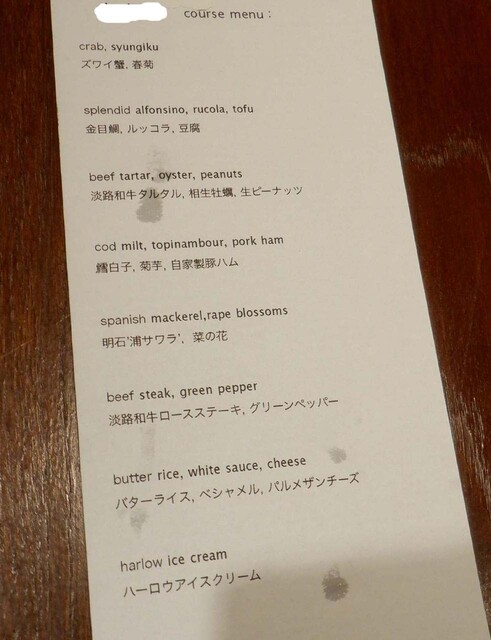 course menu :
crab, syungiku
ズワイ蟹, 春菊
splendid alfonsino, rucola, tofu
金目鯛, ルッコラ, 豆腐
beef tartar, oyster, peanuts
淡路和牛タルタル, 相生牡蠣, 生ピーナッツ
cod milt, topinambour, pork ham
鱈白子, 菊芋, 自家製豚ハム
spanish mackerel,rape blossoms
明石'浦サワラ', 菜の花
beef steak, green pepper
淡路和牛ロースステーキ, グリーンペッパー
butter rice, white sauce, cheese
バターライス, ベシャメル, パルメザンチーズ
harlow ice cream
ハーロウアイスクリーム